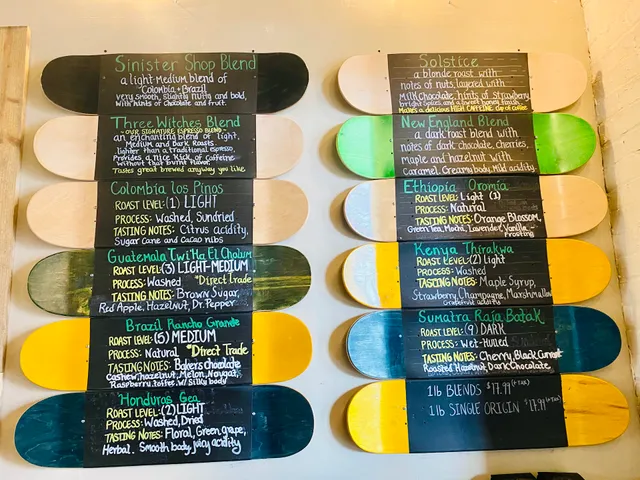 Sinister Shop Blend
a light Medium blend of
Colombia + Brazil
very smooth, slightly nutty and bold,
with hints of chocolate and fruit.
Three Witches Blend
~ OUR SIGNATURE ESPRESSO BLEND ~
an enchanting blend of light,
Medium and Dark Roasts.
lighter than a traditional espresso
Provides a nice kick of caffeine
without that burnt flavor.
Tastes great brewed anyway you like
Colombia los Pinos
ROAST LEVEL: (1) LIGHT
PROCESS: Washed, Sundried
TASTING NOTES: Citrus acidity,
Sugar Cane and Cacao nibs
Guatemala Twi'Ha El Chalum
ROAST LEVEL: (3) LIGHT-MEDIUM
PROCESS: Washed "Direct Trade
TASTING NOTES: Brown Sugar,
Red Apple, Hazelnut, Dr. Pepper
Brazil Rancho Grande
ROAST LEVEL: (5) MEDIUM
PROCESS: Natural "Direct Trade
TASTING NOTES: Bakers chocolate
Cashew, hazelnut, Melon, Nougat,
Raspberry toffee, w/ silky body
Honduras Gea
ROAST LEVEL: (2) LIGHT
PROCESS: Washed, Dried
TASTING NOTES: Floral, Green grape,
Herbal. Smooth body, juicy acidity
Solstice
a blonde roast with
notes of nuts layered with
Milk Chocolate, hints of Strawberry,
bright spices, and a sweet honey finish.
Makes a delicious HIGH CAFFEINE cup of coffee
New England Blend
a dark roast blend with
notes of dark chocolate, cherries,
maple and hazelnut with
Caramel. Creamy body Mild acidity.
Ethiopia Oromia
ROAST LEVEL: Light (1)
PROCESS: Natural
TASTING NOTES: Orange Blossom,
Green Tea, Mocha, Lavender, Vanilla ~
Frosting
Kenya Thirakwa
ROAST LEVEL: (2) Light
PROCESS: Washed
TASTING NOTES: Maple Syrup,
Strawberry, Champagne, Marshmallow
Grapefruit acidity
Sumatra Raja Batak
ROAST LEVEL: (9) DARK
PROCESS: Wet-Hulled
TASTING NOTES: Cherry, Black Currant
Roasted Hazelnut, Dark Chocolate
1 lb BLENDS $17.99 (+tax)
1 lb SINGLE ORIGIN $19.99 (+tax)